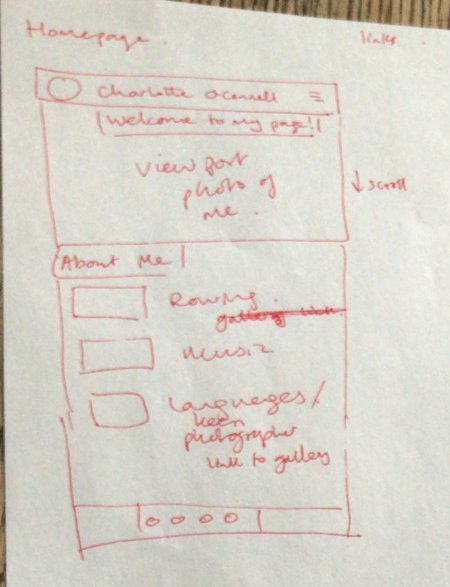 Homepage.
links.
Charlotte O'Connell
Welcome to my page!
Viewport
photo of
me.
↓ scroll
About Me
Rowing.
gallery link.
Music
Languages/
keen
photographer
link to gallery